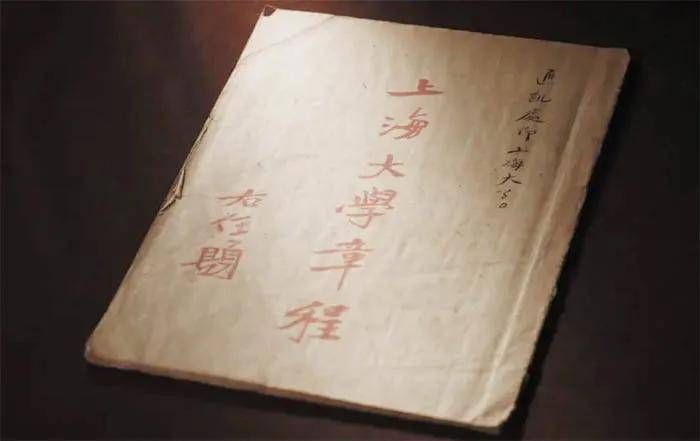 處上海大
上海大學章程
右任題